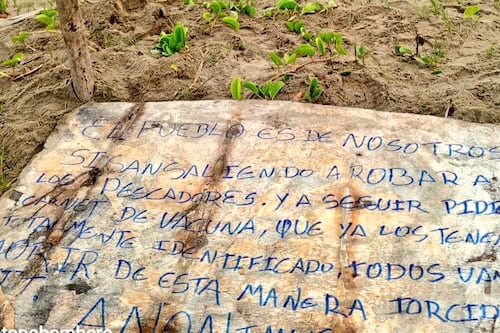 EL PUEBLO ES DE NOSOTROS
SIGAN SALIENDO A ROBAR A
LOS PESCADORES. Y A SEGUIR PIDI
CARNET DE VACUNA, QUE YA LOS TENE
TOTALMENTE IDENTIFICADO, TODOS VA
MORIR DE ESTA MANERA TORCID